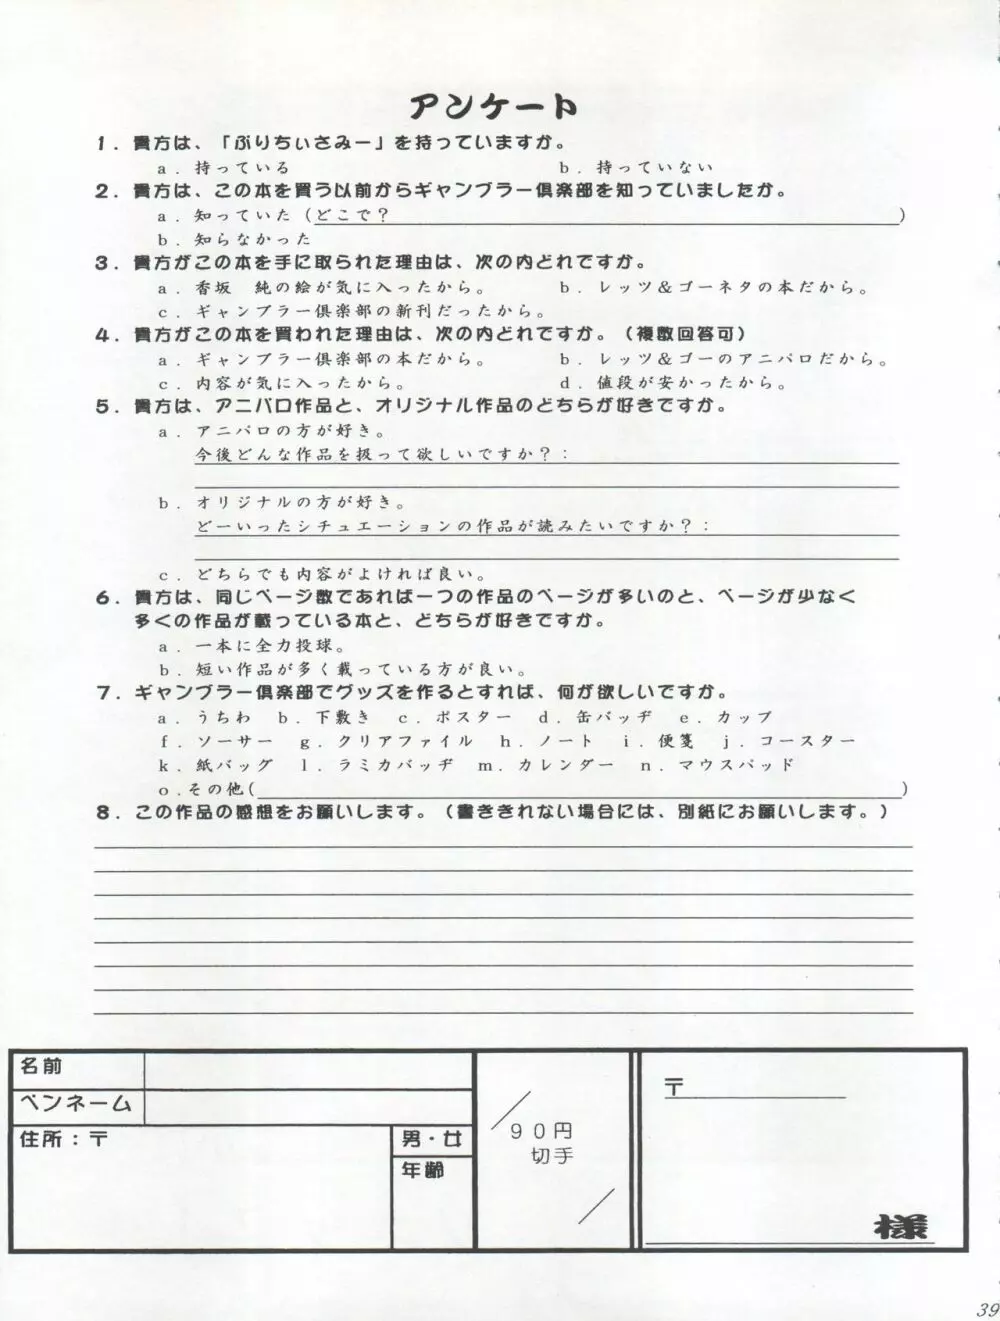 アンケート
1．貴方は、「ぷりちぃさみー」を持っていますか。
a．持っている　b．持っていない
2．貴方は、この本を買う以前からギャンブラー倶楽部を知っていましたか。
a．知っていた（どこで？　）
b．知らなかった
3．貴方がこの本を手に取られた理由は、次の内どれですか。
a．香坂　純の絵が気に入ったから。　b．レッツ＆ゴーネタの本だから。
c．ギャンブラー倶楽部の新刊だったから。
4．貴方がこの本を買われた理由は、次の内どれですか。（複数回答可）
a．ギャンブラー倶楽部の本だから。　b．レッツ＆ゴーのアニパロだから。
c．内容が気に入ったから。　d．値段が安かったから。
5．貴方は、アニパロ作品と、オリジナル作品のどちらが好きですか。
a．アニパロの方が好き。
今後どんな作品を扱って欲しいですか？：
b．オリジナルの方が好き。
どーいったシチュエーションの作品が読みたいですか？：
c．どちらでも内容がよければ良い。
6．貴方は、同じページ数であれば一つの作品のページが多いのと、ページが少なく
多くの作品が載っている本と、どちらが好きですか。
a．一本に全力投球。
b．短い作品が多く載っている方が良い。
7．ギャンブラー倶楽部でグッズを作るとすれば、何が欲しいですか。
a．うちわ　b．下敷き　c．ポスター　d．缶バッヂ　e．カップ
f．ソーサー　g．クリアファイル　h．ノート　i．便箋　j．コースター
k．紙バッグ　l．ラミカバッヂ　m．カレンダー　n．マウスパッド
o．その他(　)
8．この作品の感想をお願いします。（書ききれない場合には、別紙にお願いします。）
名前
ペンネーム
住所：〒
男・女
年齢
90円
切手
〒
様
39